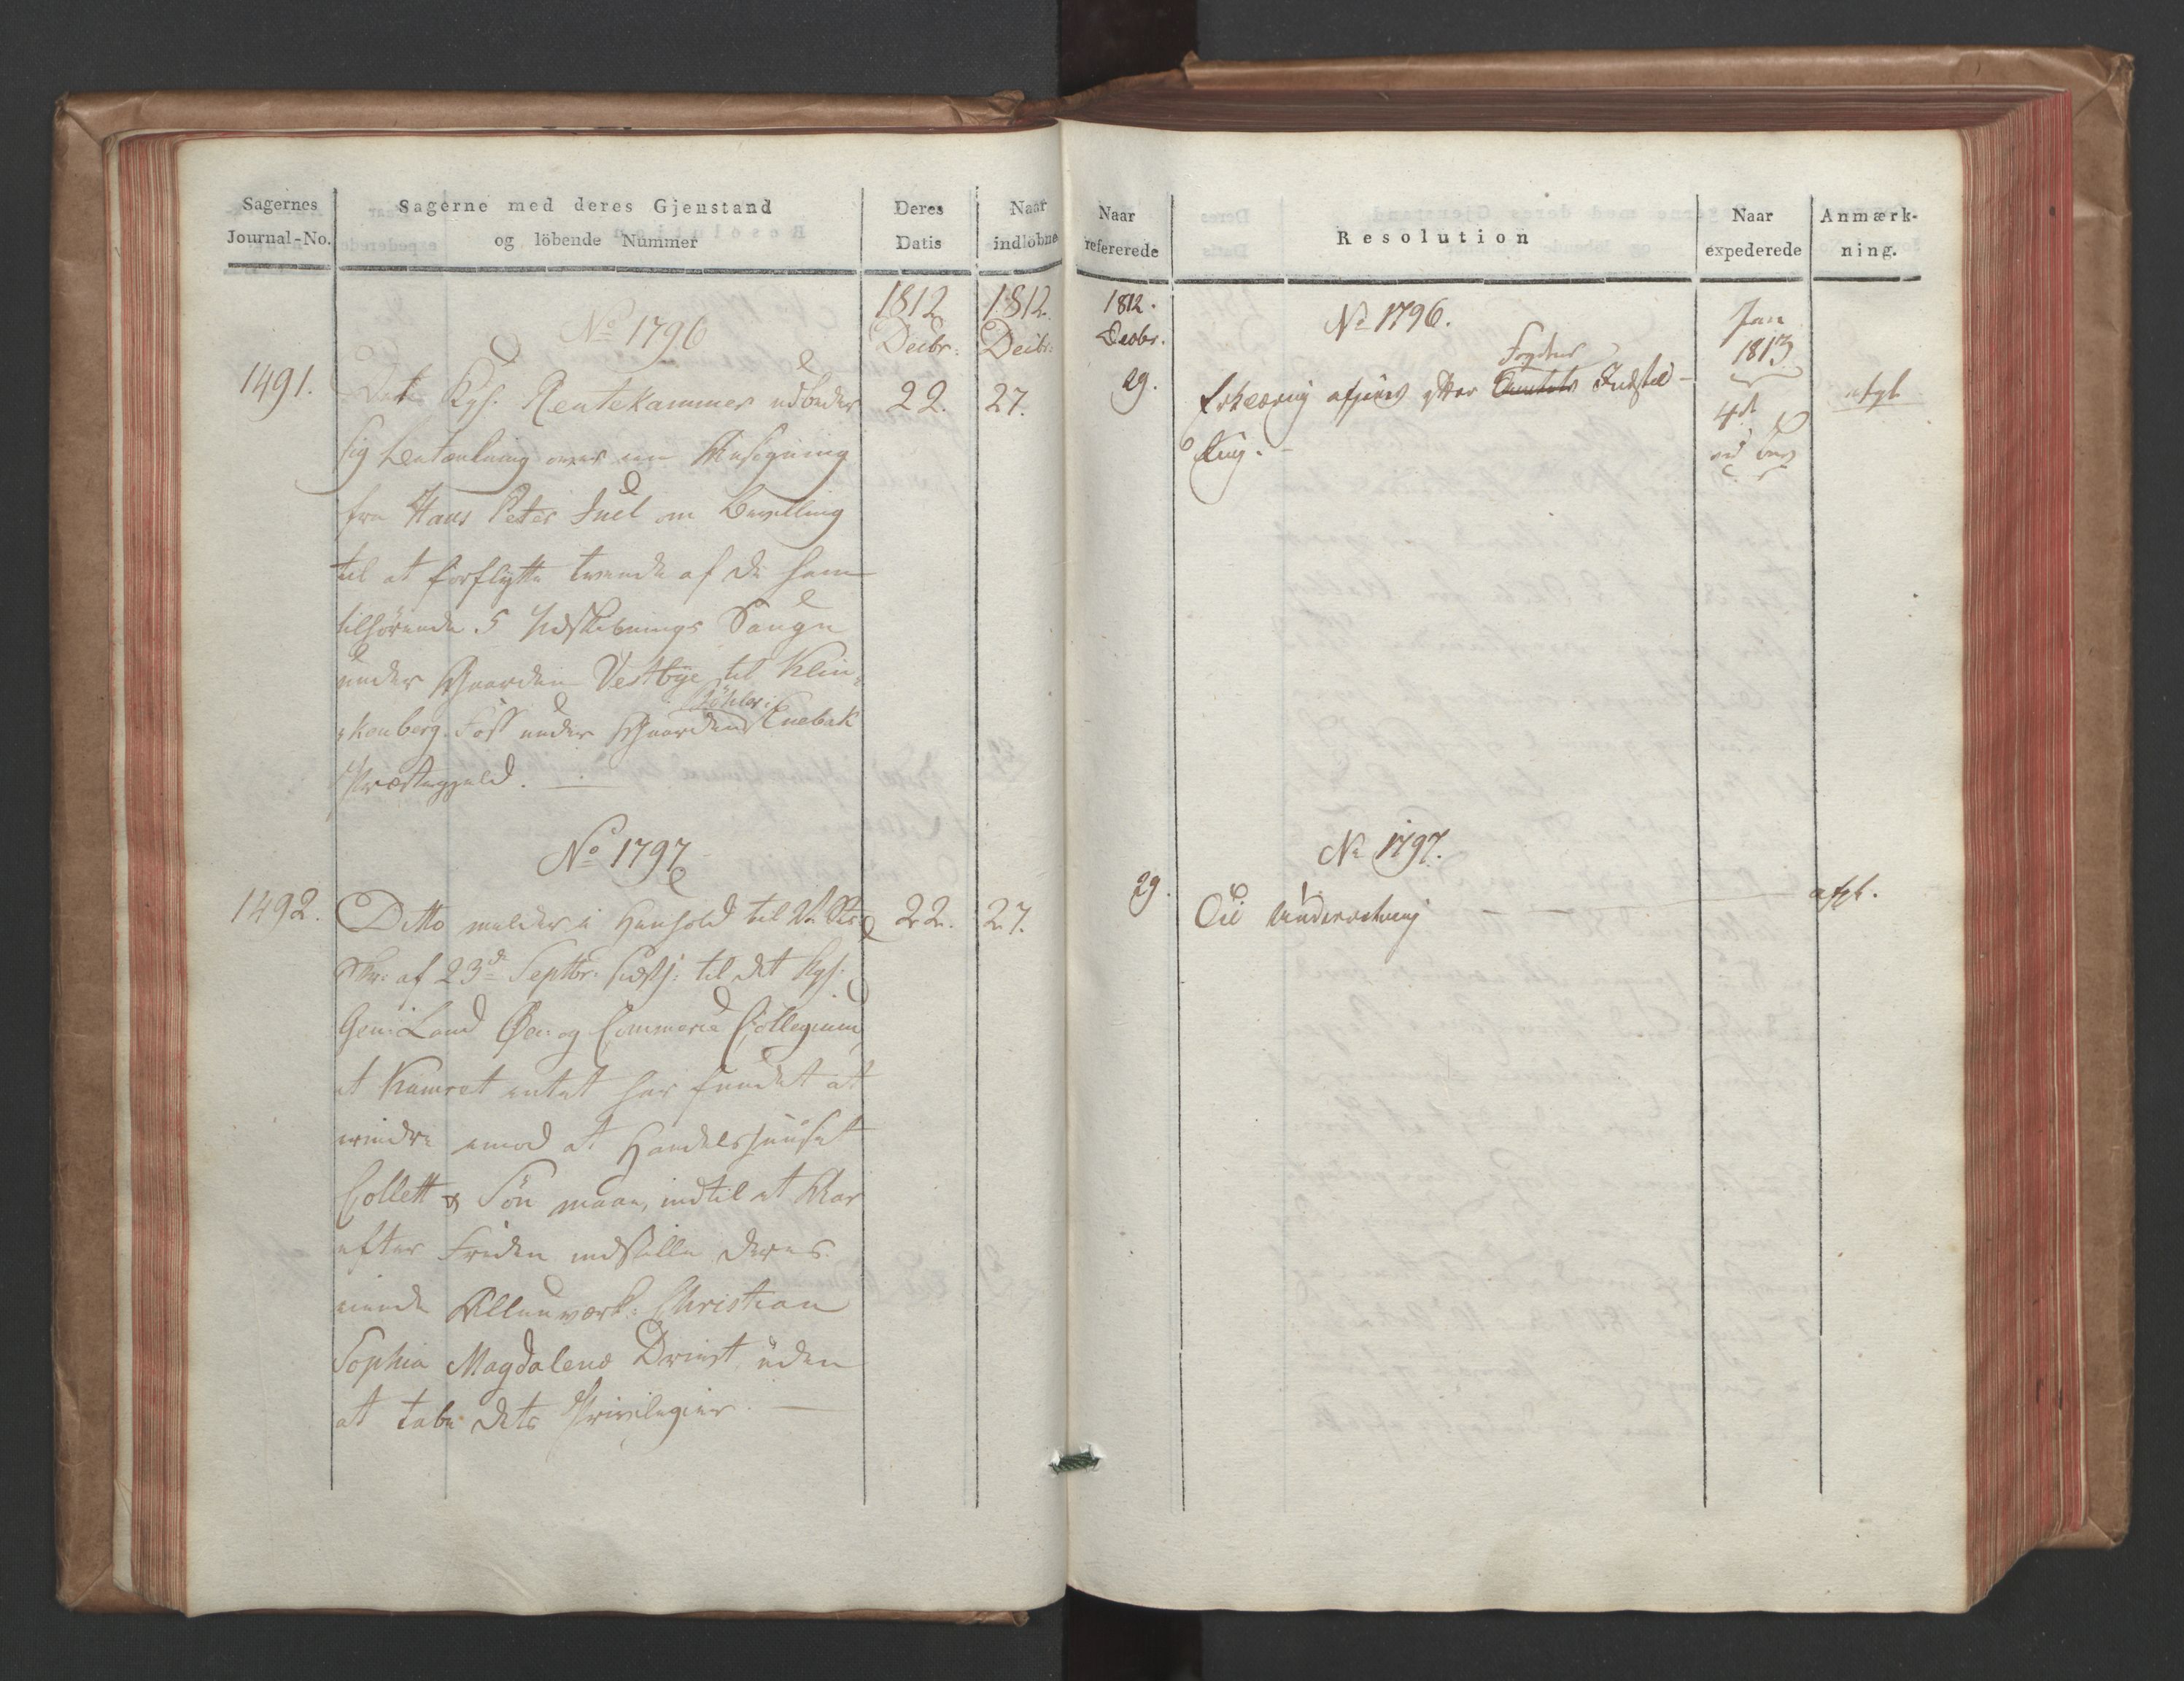 Sagernes
Journal-No.
Sagerne med deres Gjenstand
og löbende Nummer
Deres
Datis
Naar
indlöbne
1812
Decbr:
1812.
Decbr:
No 1796
1491.
Det Kgl. Rentekammer udbeder
22.
27.
sig betænkning over en Ansøgning
fra Hans Peter Juel om Bevilling
til at forflytte tvende af de ham
tilhörende 5 Udskibnings Sauge
under Gaarden Vestbye til Klin-
kenberg Foss under Gaarden Enebak
Præstegjeld.
No 1797
1492.
Ditto melder i Henhold til
22.
27.
Skr: af 23de Septbr: sidstl: til det Kgl.
Gen: Land Øec: og Commerce Collegium,
at Kamret intet har fundet at
erindre imod at Handelshuuset
Collett & Søn maae, indtil et Aar
efter Freden indstille deres
eiende Allunværk: Christian
Sophia Magdalena Drivt, uden
at tabe dets Privilegier.
Naar
refererede
Resolution
Naar
expederede
Anmærk-
ning.
1812.
Decbr.
No 1796.
Jan
1813
Fogdens
29.
Erklæring afgives efter Amtets Indstil-
4de
afgl
ling.
No 1797.
29.
Til Underretning
afgl.